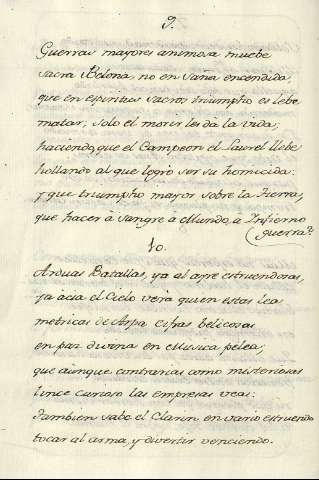 9.
Guerras mayores animosa muebe
sacra Belona, no en saña encendida,
que en espiritus sacros triumpho es lebe
matar; solo el morir les dà la vida;
haciendo, que el Campeon el Laurel llebe
hollando al que logrò ser su homicida:
y que triumpho mayor sobre la tierra,
que hacer à sangre à Mundo, à Infierno
guerra?
10.
Arduas Batallas, ya al ayre estruendoras,
ya àcia el Cielo verà quien estas lea
metricas de Arpa cifras belicosas
en paz divina en Musica pelea;
que aunque contrarias como misteriosas
lince curioso las empresas vea:
tambien sabe el Clarin en vario estruendo
tocar al arma, y divertir venciendo.